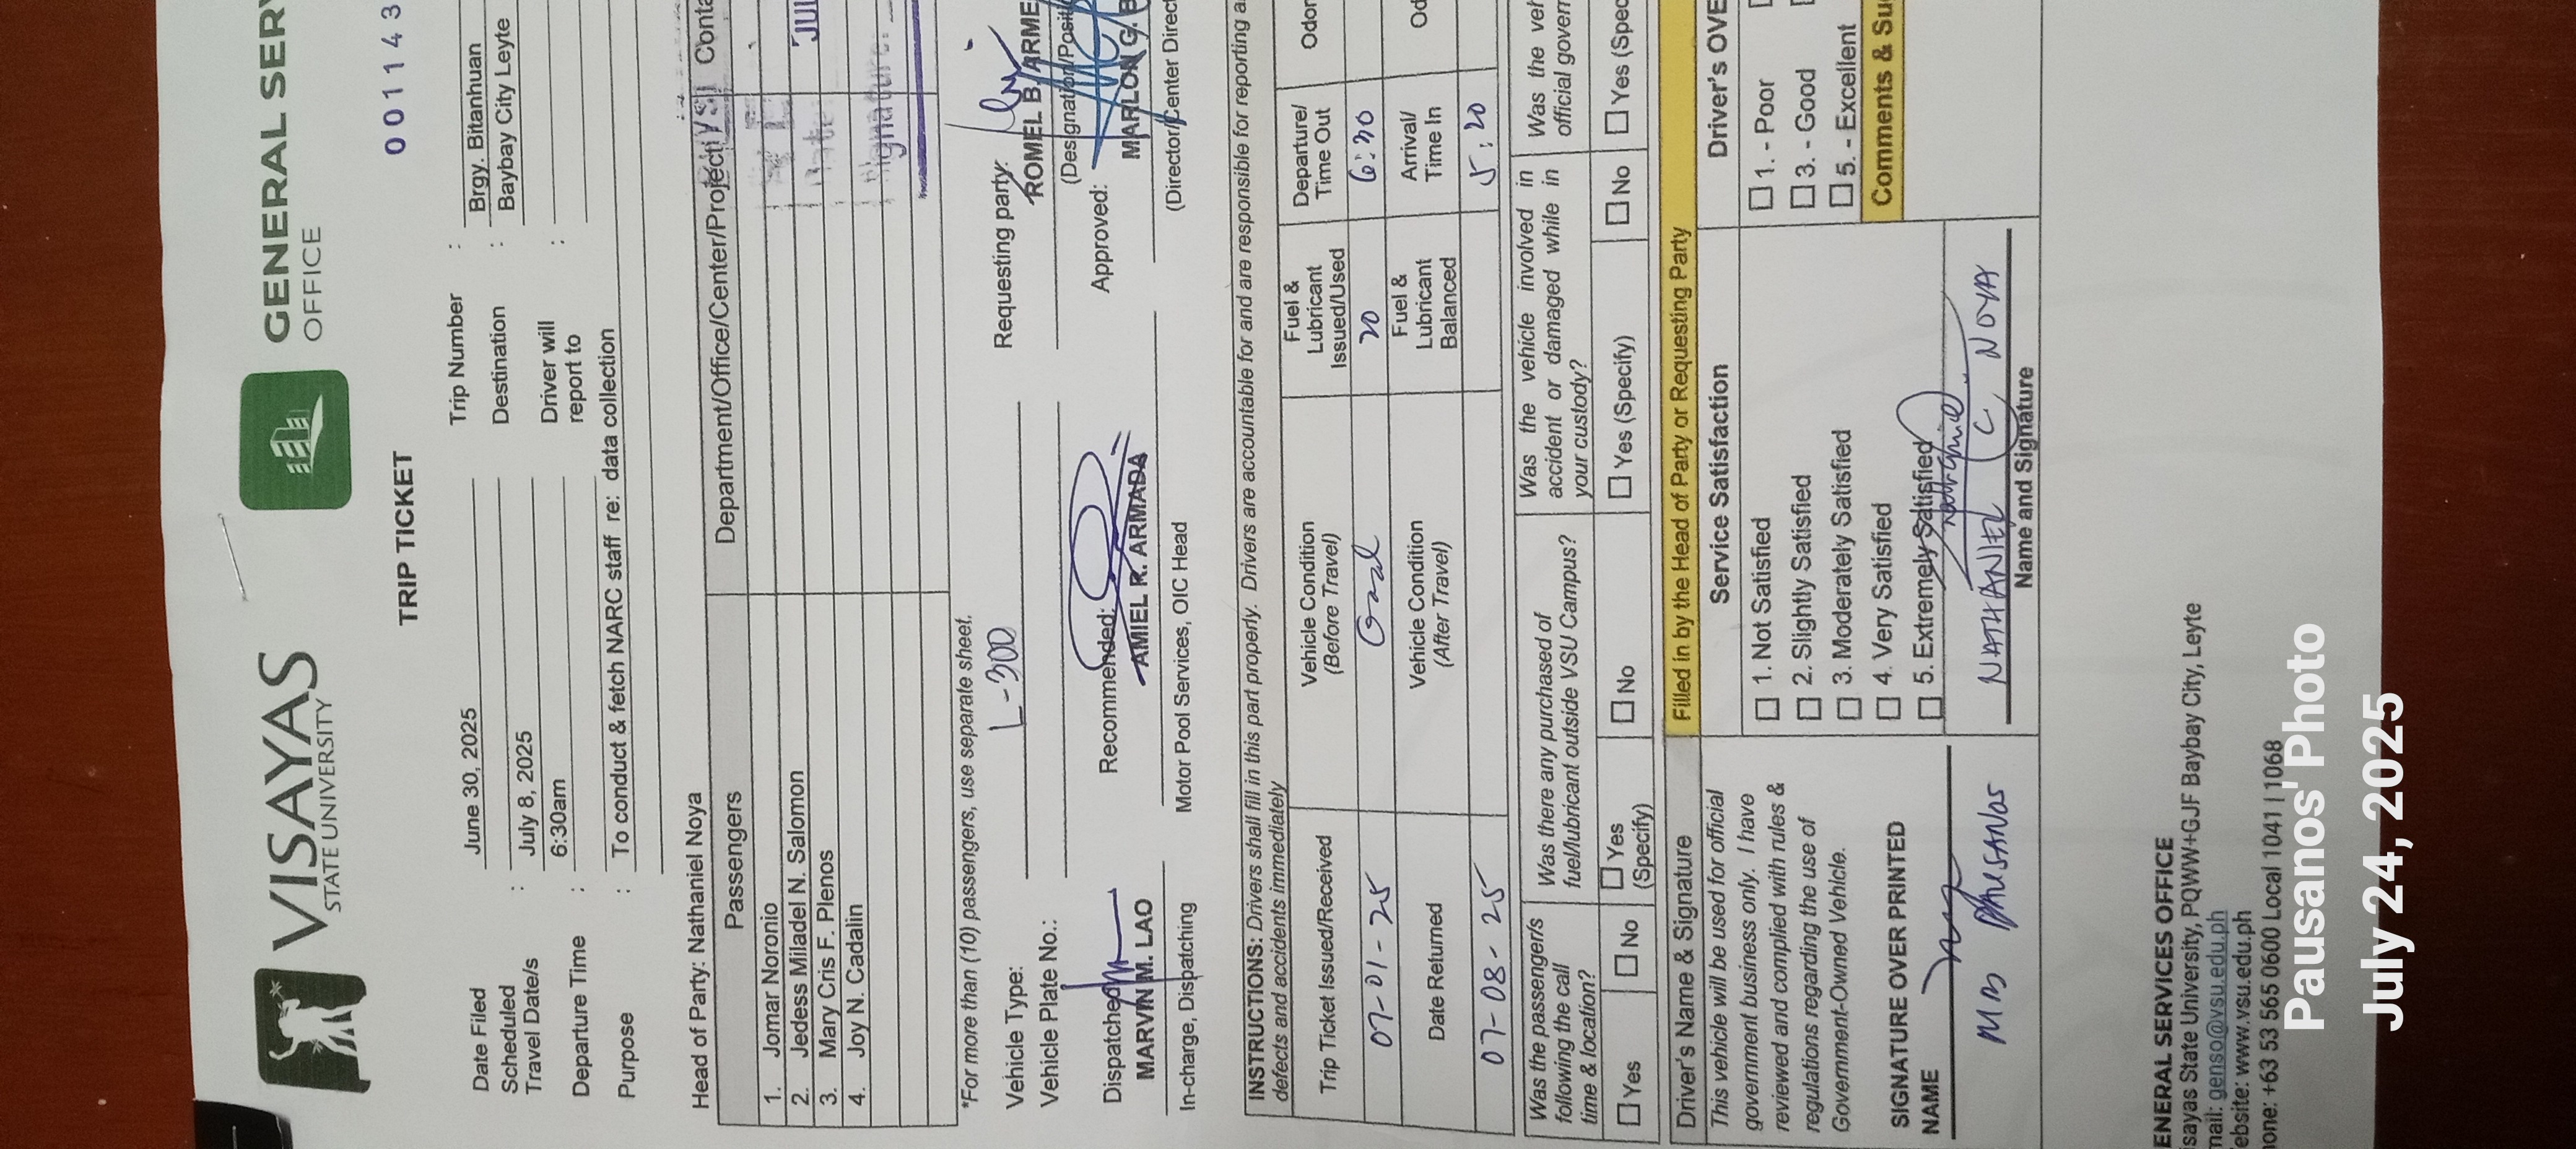 VISAYAS
STATE UNIVERSITY
GENERAL SERV
OFFICE
TRIP TICKET
001143
Date Filed June 30, 2025 Trip Number :
Scheduled
Travel Date/s : July 8, 2025 Destination : Brgy. Bitanhuan
Baybay City Leyte
Departure Time : 6:30am Driver will
report to :
Purpose : To conduct & fetch NARC staff re: data collection
Head of Party: Nathaniel Noya
Passengers Department/Office/Center/Project Conta
1. Jomar Noronio
2. Jedess Miladel N. Salomon
3. Mary Cris F. Plenos
4. Joy N. Cadalin
Date
Signature:
*For more than (10) passengers, use separate sheet.
Vehicle Type: L-300 Requesting party:
ROMEL B. ARME
Vehicle Plate No.: (Designation/Positi
Dispatched Recommended: Approved:
MARVIN M. LAO AMIEL R. ARMADA MARLON G. B
In-charge, Dispatching Motor Pool Services, OIC Head (Director/Center Direct
INSTRUCTIONS: Drivers shall fill in this part properly. Drivers are accountable for and are responsible for reporting a
defects and accidents immediately
Trip Ticket Issued/Received Vehicle Condition
(Before Travel) Fuel &
Lubricant
Issued/Used Departure/
Time Out Odor
07-01-25 Good 20 6:30
Date Returned Vehicle Condition
(After Travel) Fuel &
Lubricant
Balanced Arrival/
Time In Od
07-08-25 5:20
Was the passenger/s
following the call
time & location? Was there any purchased of
fuel/lubricant outside VSU Campus? Was the vehicle involved in
accident or damaged while in
your custody? Was the veh
official govern
☐ Yes ☐ No ☐ Yes
(Specify) ☐ No ☐ Yes (Specify) ☐ No ☐ Yes (Spec
Driver's Name & Signature Filled in by the Head of Party or Requesting Party
This vehicle will be used for official
government business only. I have
reviewed and complied with rules &
regulations regarding the use of
Government-Owned Vehicle.
SIGNATURE OVER PRINTED
NAME
Service Satisfaction
☐ 1. Not Satisfied
☐ 2. Slightly Satisfied
☐ 3. Moderately Satisfied
☐ 4. Very Satisfied
☐ 5. Extremely Satisfied
NATHANIEL C. NOYA
Name and Signature
Driver's OVE
☐ 1. - Poor
☐ 3. - Good
☐ 5. - Excellent
Comments & Su
ENERAL SERVICES OFFICE
isayas State University, PQWW+GJF Baybay City, Leyte
mail: genso@vsu.edu.ph
ebsite: www.vsu.edu.ph
hone: +63 53 565 0600 Local 1041 | 1068
Pausanos' Photo
July 24, 2025